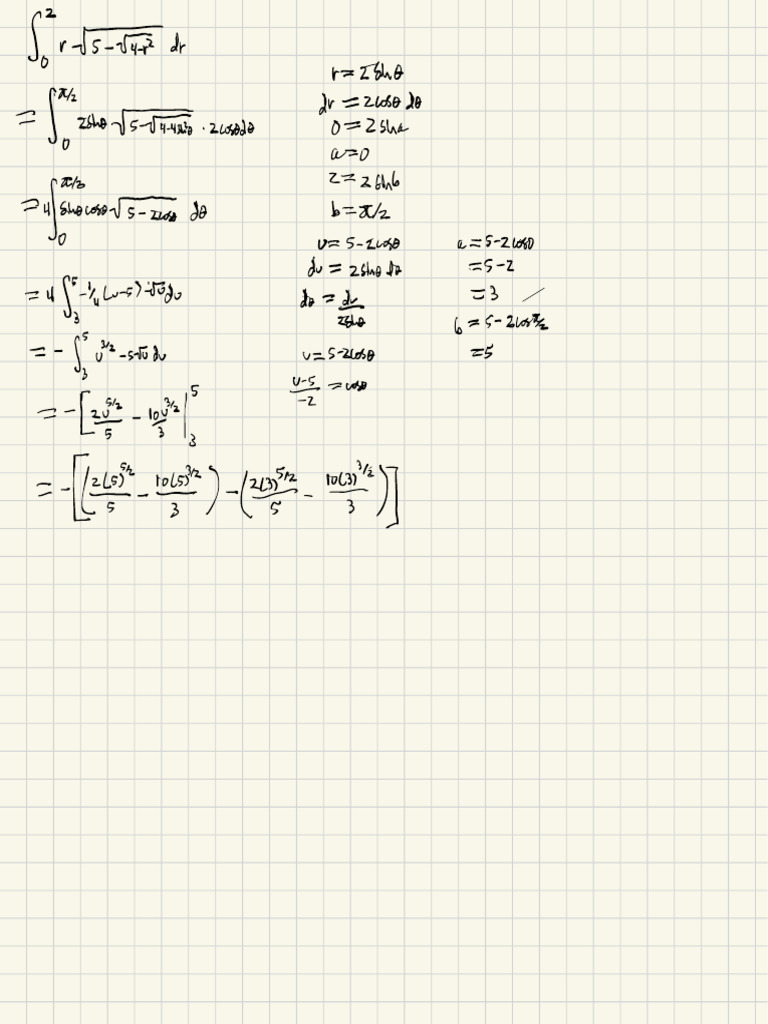 ∫₀² r √(5-√(4-r²)) dr
= ∫₀^(π/2) 2sinθ √(5-√(4-4sin²θ)) · 2cosθ dθ
= 4∫₀^(π/2) sinθcosθ √(5-2cosθ) dθ
= 4 ∫₃⁵ -1/4 (u-5) · √u du
= - ∫₃⁵ u^(3/2) - 5√u du
= - [2u^(5/2)/5 - 10u^(3/2)/3 |₃⁵
= - [(2(5)^(5/2)/5 - 10(5)^(3/2)/3) - (2(3)^(5/2)/5 - 10(3)^(3/2)/3)]
r = 2sinθ
dr = 2cosθ dθ
0 = 2sin a
a = 0
2 = 2sin b
b = π/2
u = 5-2cosθ
du = 2sinθ dθ
dθ = du/2sinθ
u = 5-2cosθ
(u-5)/-2 = cosθ
a = 5-2cos0
= 5-2
= 3
b = 5-2cos π/2
= 5